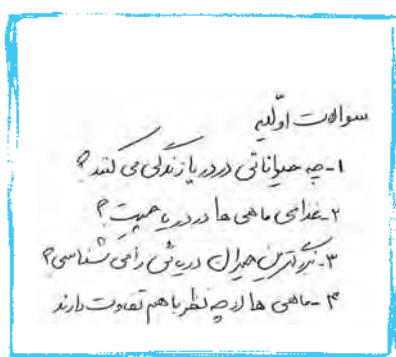 سوالات اوّلیه
۱-چه حیواناتی در دریا زندگی می کنند؟
۲-غذای ماهی ها در دریا چیست؟
۳-بزرگترین حیوان دریائی را می شناسی؟
۴-ماهی ها از چه نظر با هم تفاوت دارند